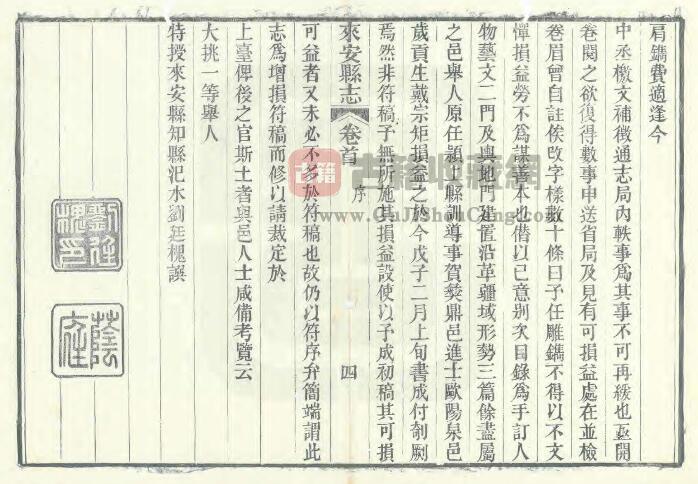 肩鐫費適逢今
中丞檄文補徵通志局內軼事爲其事不可再緩也亟開
卷閱之欲復得數事申送省局及見有可損益處在並檢
卷眉曾自註俟改字樣數十條曰予任雕鐫不得以不文
憚損益勞不爲謀善本也借以己意別次目錄爲手訂人
物藝文二門及輿地門建置沿革疆域形勢三篇餘盡屬
之邑舉人原任潁上縣訓導事賀燮鼎邑進士歐陽泉邑
歲貢生戴宗炬損益之於今戊子二月上旬書成付剞劂
焉然非符稿予無所施其損益設使以予成初稿其可損
來安縣志 卷首 序 四
可益者又未必不多於符稿也故仍以符序弁簡端謂此
志爲增損符稿而修以請裁定於
上臺俾後之官斯土者與邑人士咸備考覽云
大挑一等舉人
特授來安縣知縣汜水劉廷槐譔
劉廷槐印
蔭庭
古籍
古籍收藏網
www.GuJiShouCang.com